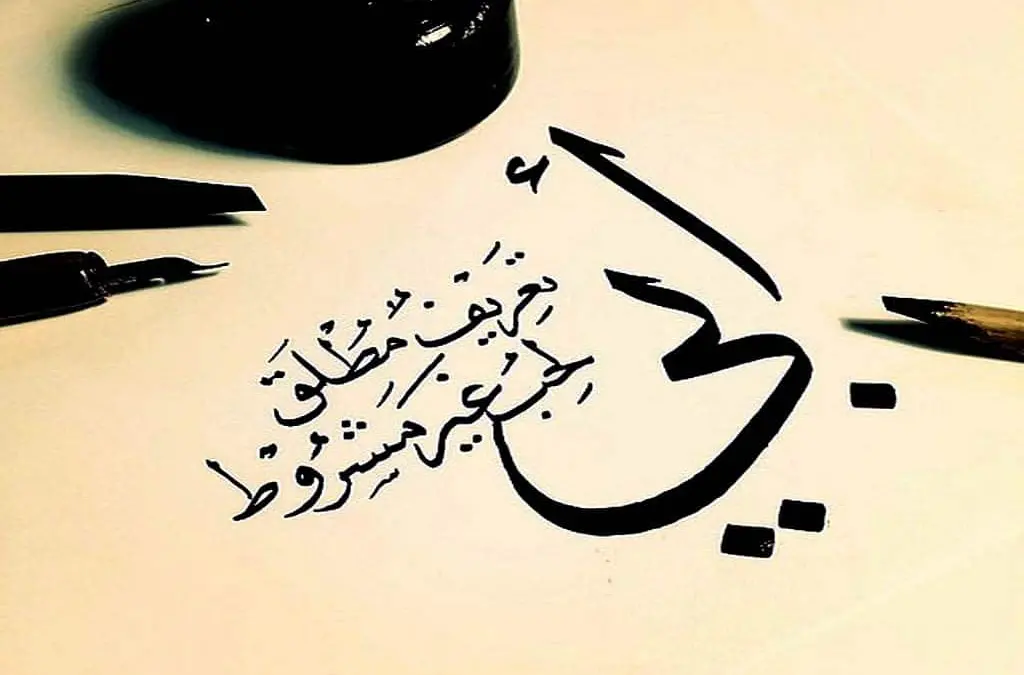 أبي
تَعْرِيف مُطْلَق
لِحُب غير مَشِرُوط